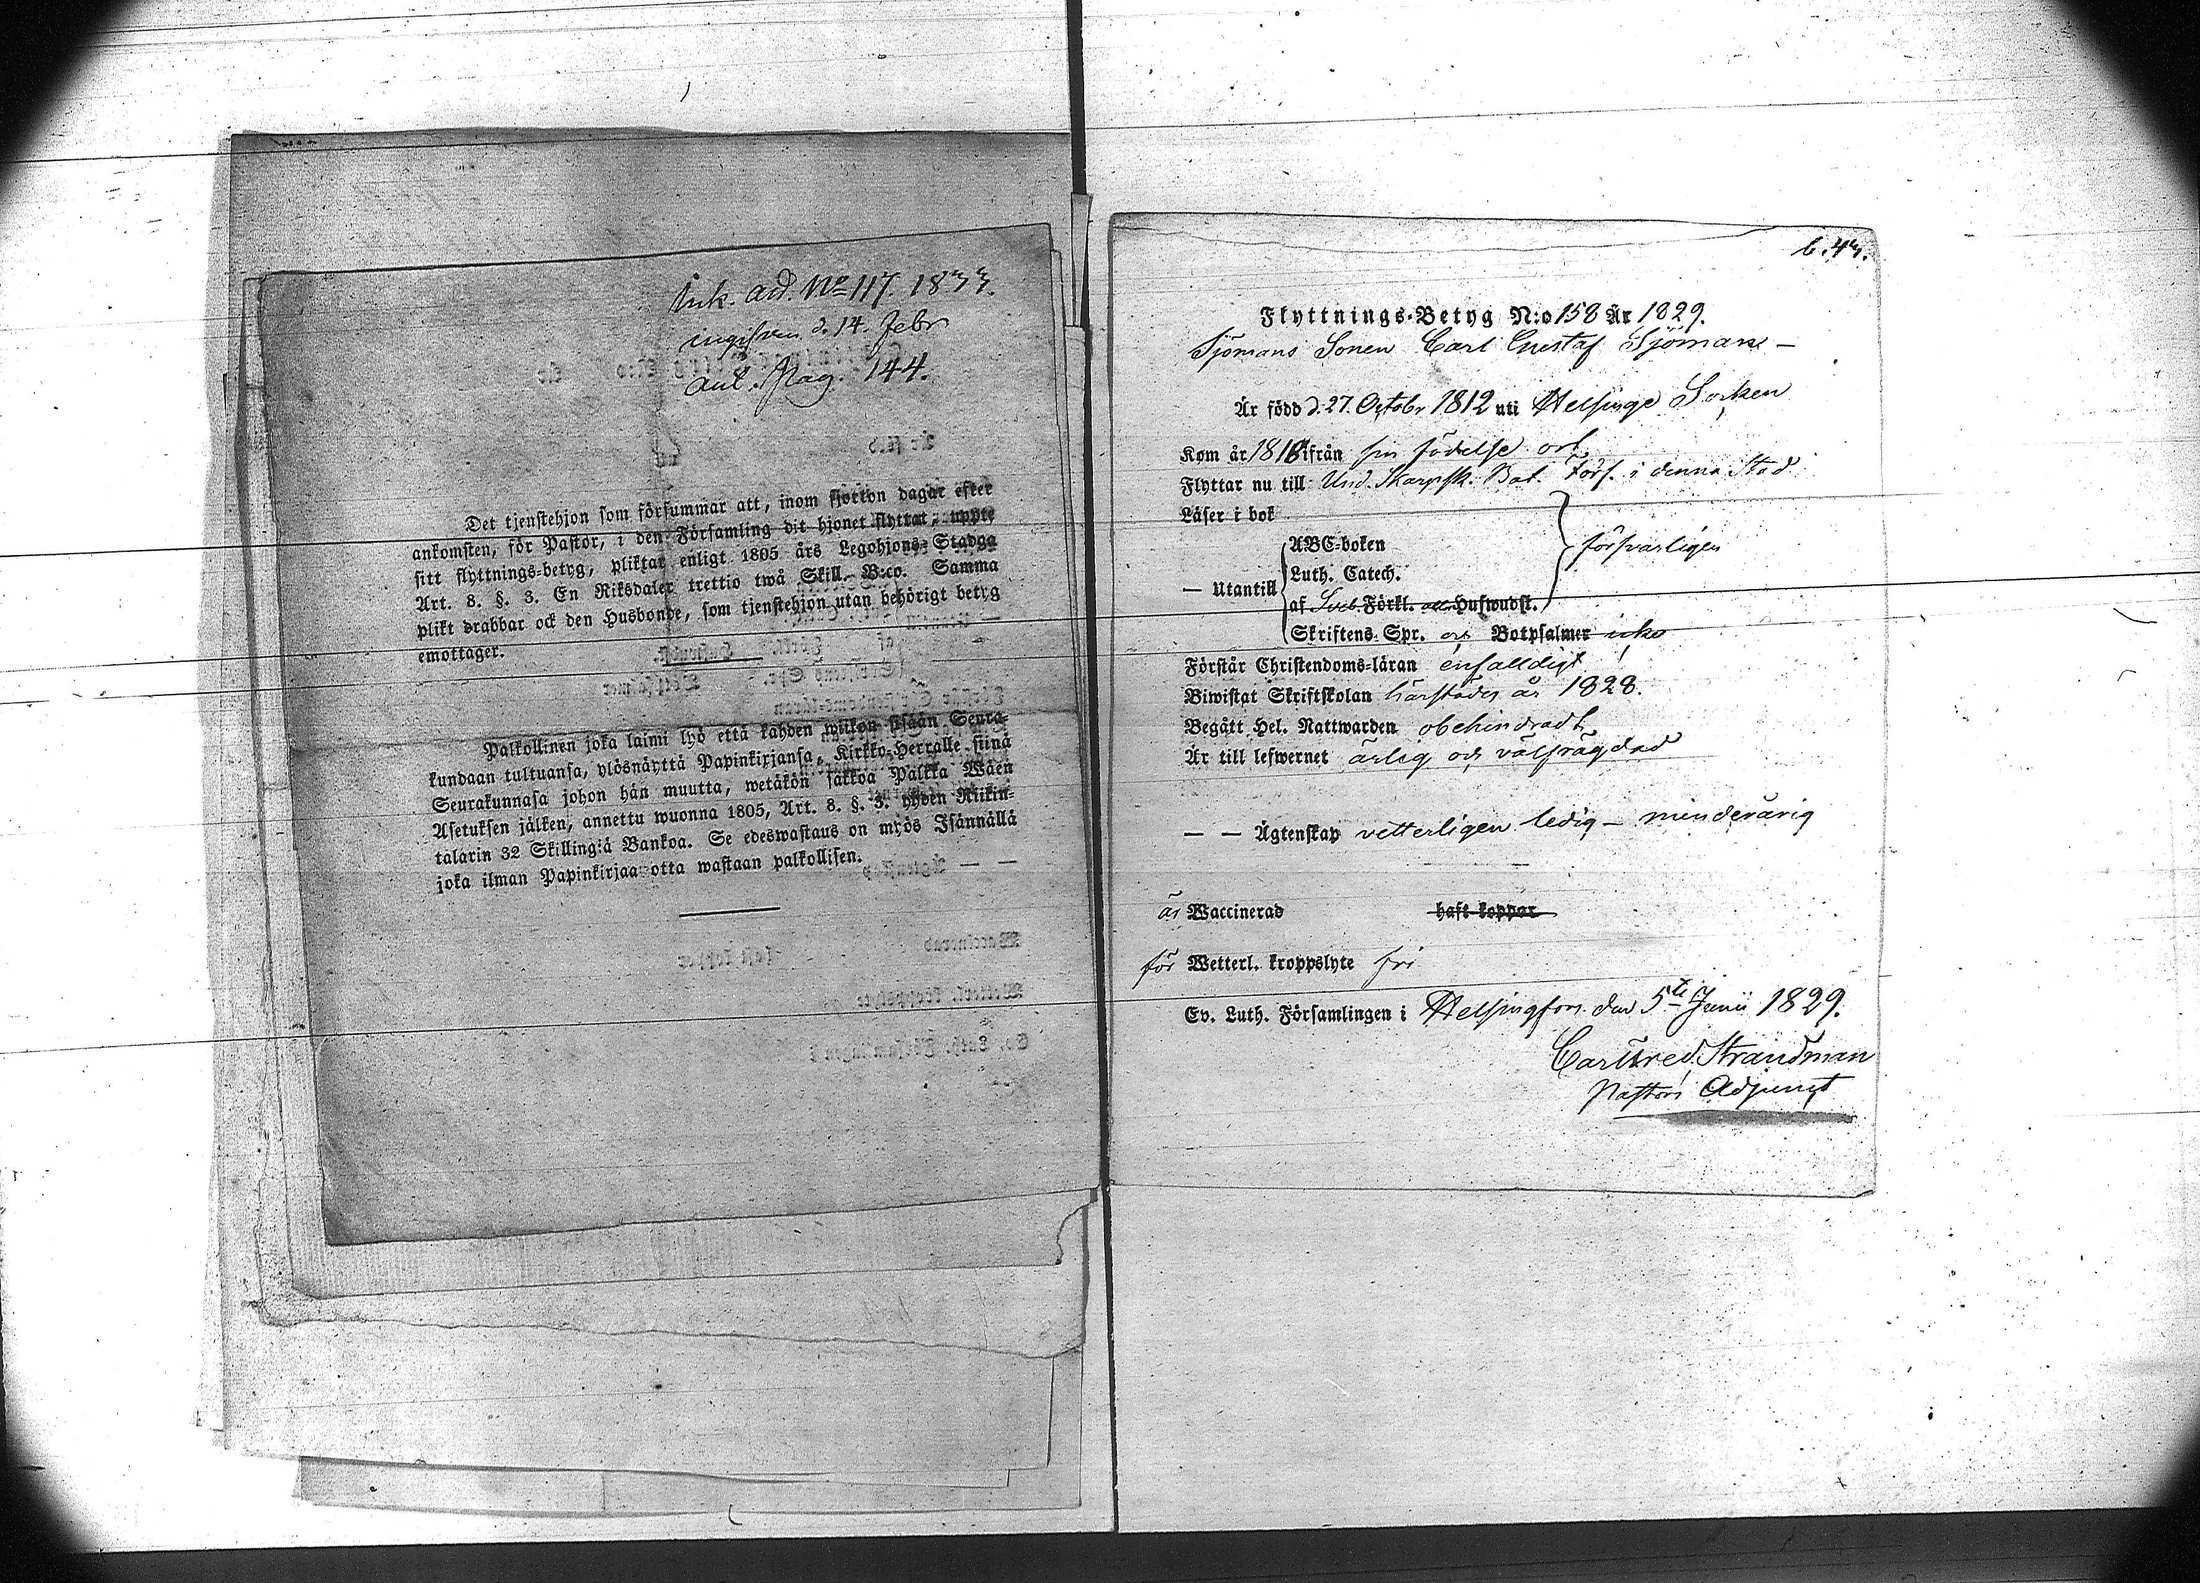 Ink. ad. No 117. 1833.
ingifven d. 14. Febr
anl. Pag. 144.
Det tjenstehjon som försummar att, inom fjorton dagar efter
ankomsten, för Pastor, i den Församling dit hjonet flyttat, uppte
sitt flyttnings-betyg, pliktar enligt 1805 års Legohjons-Stadga
Art. 8. §. 3. En Riksdaler trettio twå Skill. B:co. Samma
plikt drabbar ock den Husbonde, som tjenstehjon utan behörigt betyg
emottager.
Palkollinen joka laimi lyö että kahden wiikon sisään Seura-
kundaan tultuansa, ylösnäyttä Papinkirjansa, Kirkko-Herralle siinä
Seurakunnasa johon hän muutta, wetäkön sakkoa Palkka Wäen
Asetuksen jälken, annettu wuonna 1805, Art. 8. §. 3. yhden Riikin-
talarin 32 Skillingiä Bankoa. Se edeswastaus on myös Isännällä
joka ilman Papinkirjaa otta wastaan palkollisen.
Flyttnings-Betyg N:o 158 År 1829.
Sjömans Sonen Carl Gustaf Sjöman –
Är född d. 27. Octobr 1812 uti Helsinge Socken
Kom år 1818 ifrån sin födelse ort
Flyttar nu till Und. Skarpsk. Bat. Förs. i denna Stad
Läser i bok
ABC-boken försvarligen
Luth. Catech.
— Utantill
af Sveb. Förkl. Huswudst.
Skriftens Spr. och Botpsalmer icke
Förstår Christendoms-läran enfalldigt
Biwistat Skriftskolan härstädes år 1828.
Begått Hel. Nattwarden obehindradt
Är till lefwernet ärlig och välfrägdad
— — Ägtenskap vetterligen ledig – minderårig
är Waccinerad haft koppor
för Wetterl. kroppslyte fri
Ev. Luth. Församlingen i Helsingfors den 5te Junii 1829.
Carl Fred. Strandman
Pastors Adjunct